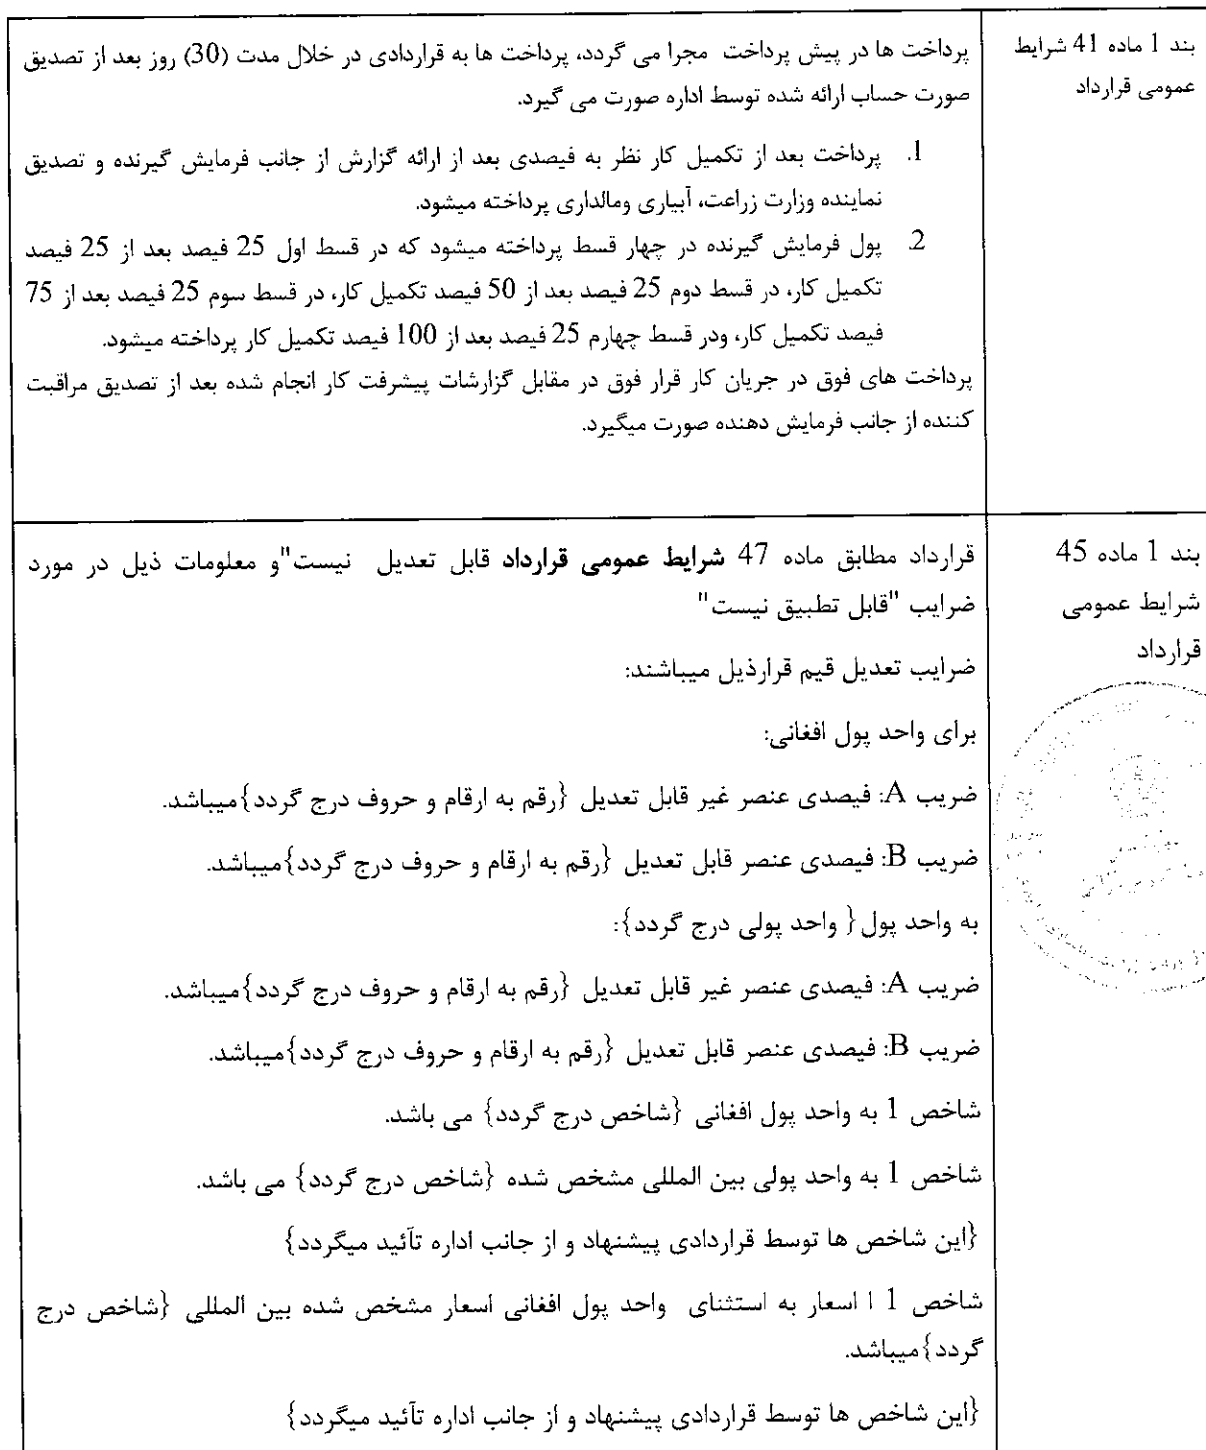 بند 1 ماده 41 شرایط
عمومی قرارداد
پرداخت ها در پیش پرداخت مجرا می گردد، پرداخت ها به قراردادی در خلال مدت (30) روز بعد از تصدیق
صورت حساب ارائه شده توسط اداره صورت می گیرد.
1. پرداخت بعد از تکمیل کار نظر به فیصدی بعد از ارائه گزارش از جانب فرمایش گیرنده و تصدیق
نماینده وزارت زراعت، آبیاری ومالداری پرداخته میشود.
2. پول فرمایش گیرنده در چهار قسط پرداخته میشود که در قسط اول 25 فیصد بعد از 25 فیصد
تکمیل کار، در قسط دوم 25 فیصد بعد از 50 فیصد تکمیل کار، در قسط سوم 25 فیصد بعد از 75
فیصد تکمیل کار، ودر قسط چهارم 25 فیصد بعد از 100 فیصد تکمیل کار پرداخته میشود.
پرداخت های فوق در جریان کار قرار فوق در مقابل گزارشات پیشرفت کار انجام شده بعد از تصدیق مراقبت
کننده از جانب فرمایش دهنده صورت میگیرد.
بند 1 ماده 45
شرایط عمومی
قرارداد
قرارداد مطابق ماده 47 شرایط عمومی قرارداد قابل تعدیل نیست"و معلومات ذیل در مورد
ضرایب "قابل تطبیق نیست"
ضرایب تعدیل قیم قرارذیل میباشند:
برای واحد پول افغانی:
ضریب A: فیصدی عنصر غیر قابل تعدیل {رقم به ارقام و حروف درج گردد}میباشد.
ضریب B: فیصدی عنصر قابل تعدیل {رقم به ارقام و حروف درج گردد}میباشد.
به واحد پول{ واحد پولی درج گردد}:
ضریب A: فیصدی عنصر غیر قابل تعدیل {رقم به ارقام و حروف درج گردد}میباشد.
ضریب B: فیصدی عنصر قابل تعدیل {رقم به ارقام و حروف درج گردد}میباشد.
شاخص 1 به واحد پول افغانی {شاخص درج گردد} می باشد.
شاخص 1 به واحد پولی بین المللی مشخص شده {شاخص درج گردد} می باشد.
{این شاخص ها توسط قراردادی پیشنهاد و از جانب اداره تآئید میگردد}
شاخص 1 ا اسعار به استثنای واحد پول افغانی اسعار مشخص شده بین المللی {شاخص درج
گردد}میباشد.
{این شاخص ها توسط قراردادی پیشنهاد و از جانب اداره تآئید میگردد}